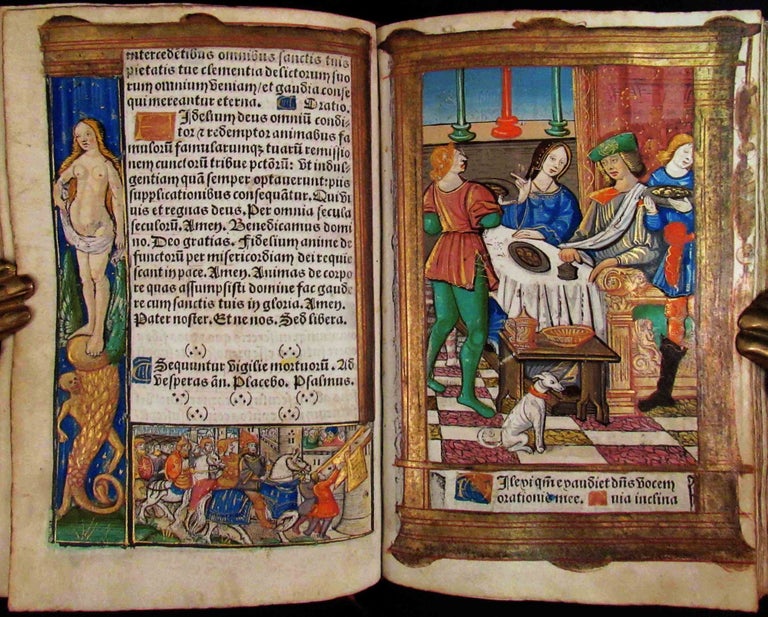 intercedētibus omnibus sanctis tuis
pietatis tue clementia delictorum suo
rum omnium veniam/et gaudia conse
qui mereantur eterna. Oratio.
Fidelium deus omniū condi
tor ⁊ redemptor animabus fa
mulorū famularumque tuarū remissio
nem cunctorū tribue pctōrū: vt indul
gentiam quā semper optauerunt: piis
supplicationibus consequātur. Qui vi
uis et regnas deus. Per omnia secula
seculorū. Amen. Benedicamus domi
no. Deo gratias. Fidelium anime de
functorū per misericordiam dei requie
scant in pace. Amen. Animas de corpo
re quas assumpsisti domine fac gaude
re cum sanctis tuis in gloria. Amen.
Pater noster. Et ne nos. Sed libera.
Sequuntur vigilie mortuorū. Ad
vesperas añ. Placebo. Psalmus.
Ilexi qm̄ exaudiet dñs vocem
orationis mee. Quia inclina